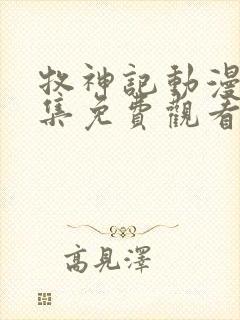 牧神記動漫
集免費觀看
高見澤